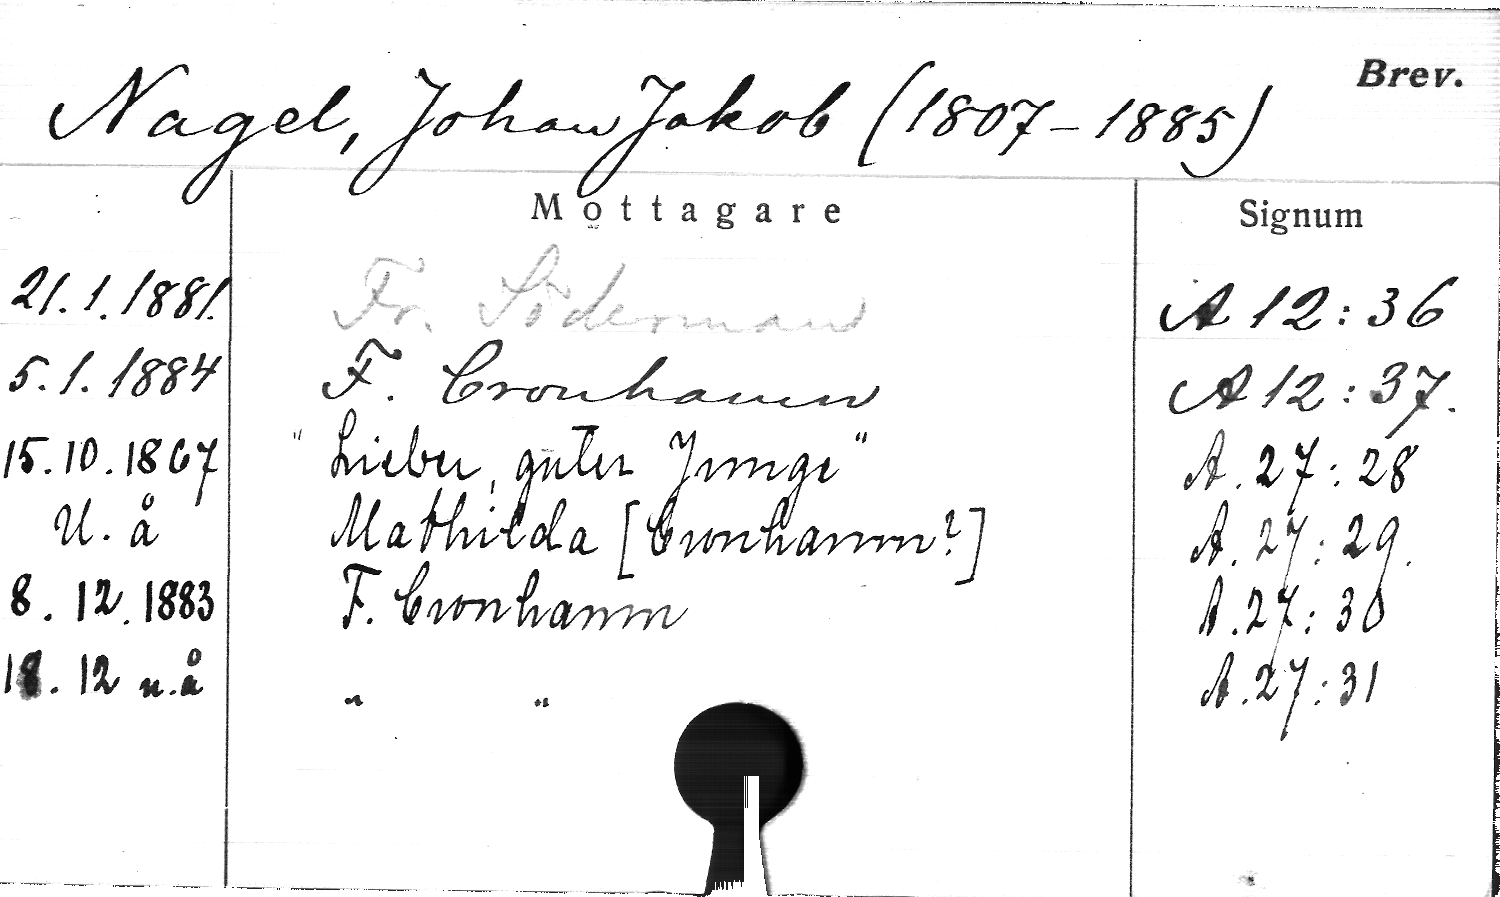 Brev.
Nagel, Johan Jakob (1807-1885)
Mottagare Signum
21.1.1881. Fr. Söderman A 12:36
5.1.1884 F. Cronhamn A 12:37.
15.10.1867 "Lieber, guter Junge" A.27:28
U.å Mathilda [Cronhamn?] A.27:29.
8.12.1883 F. Cronhamn A.27:30
18.12 u.å " " A.27:31